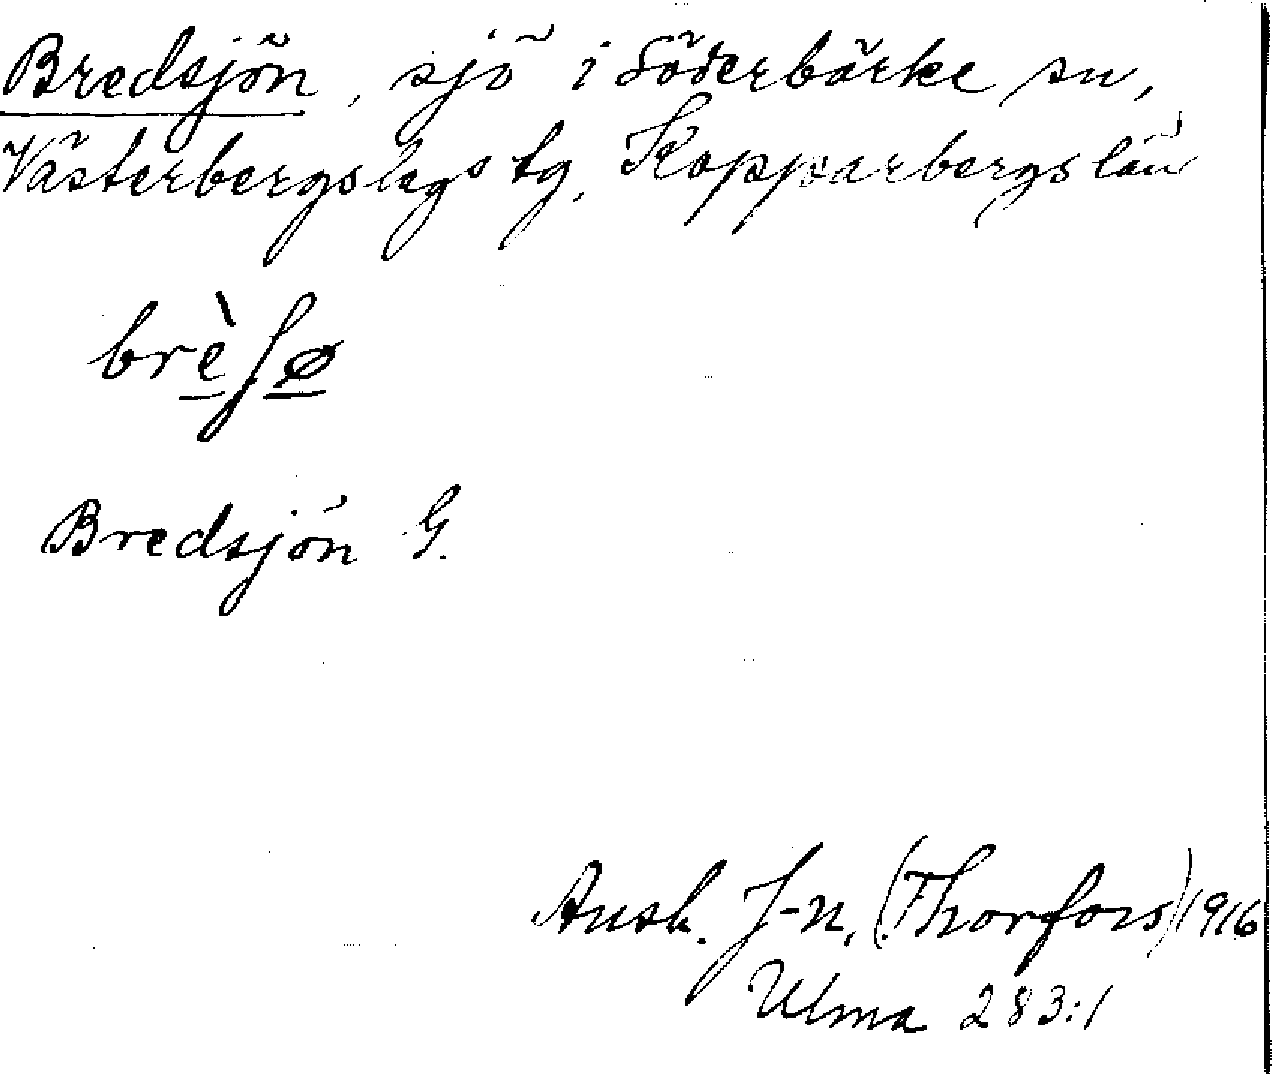 Bredsjön, sjö i Söderbärke sn,
Västerbergslags tg, Kopparbergs län
brèʃø
Bredsjön G.
Ansk. J-n, (Thorfors) 1916
Ulma 283:1